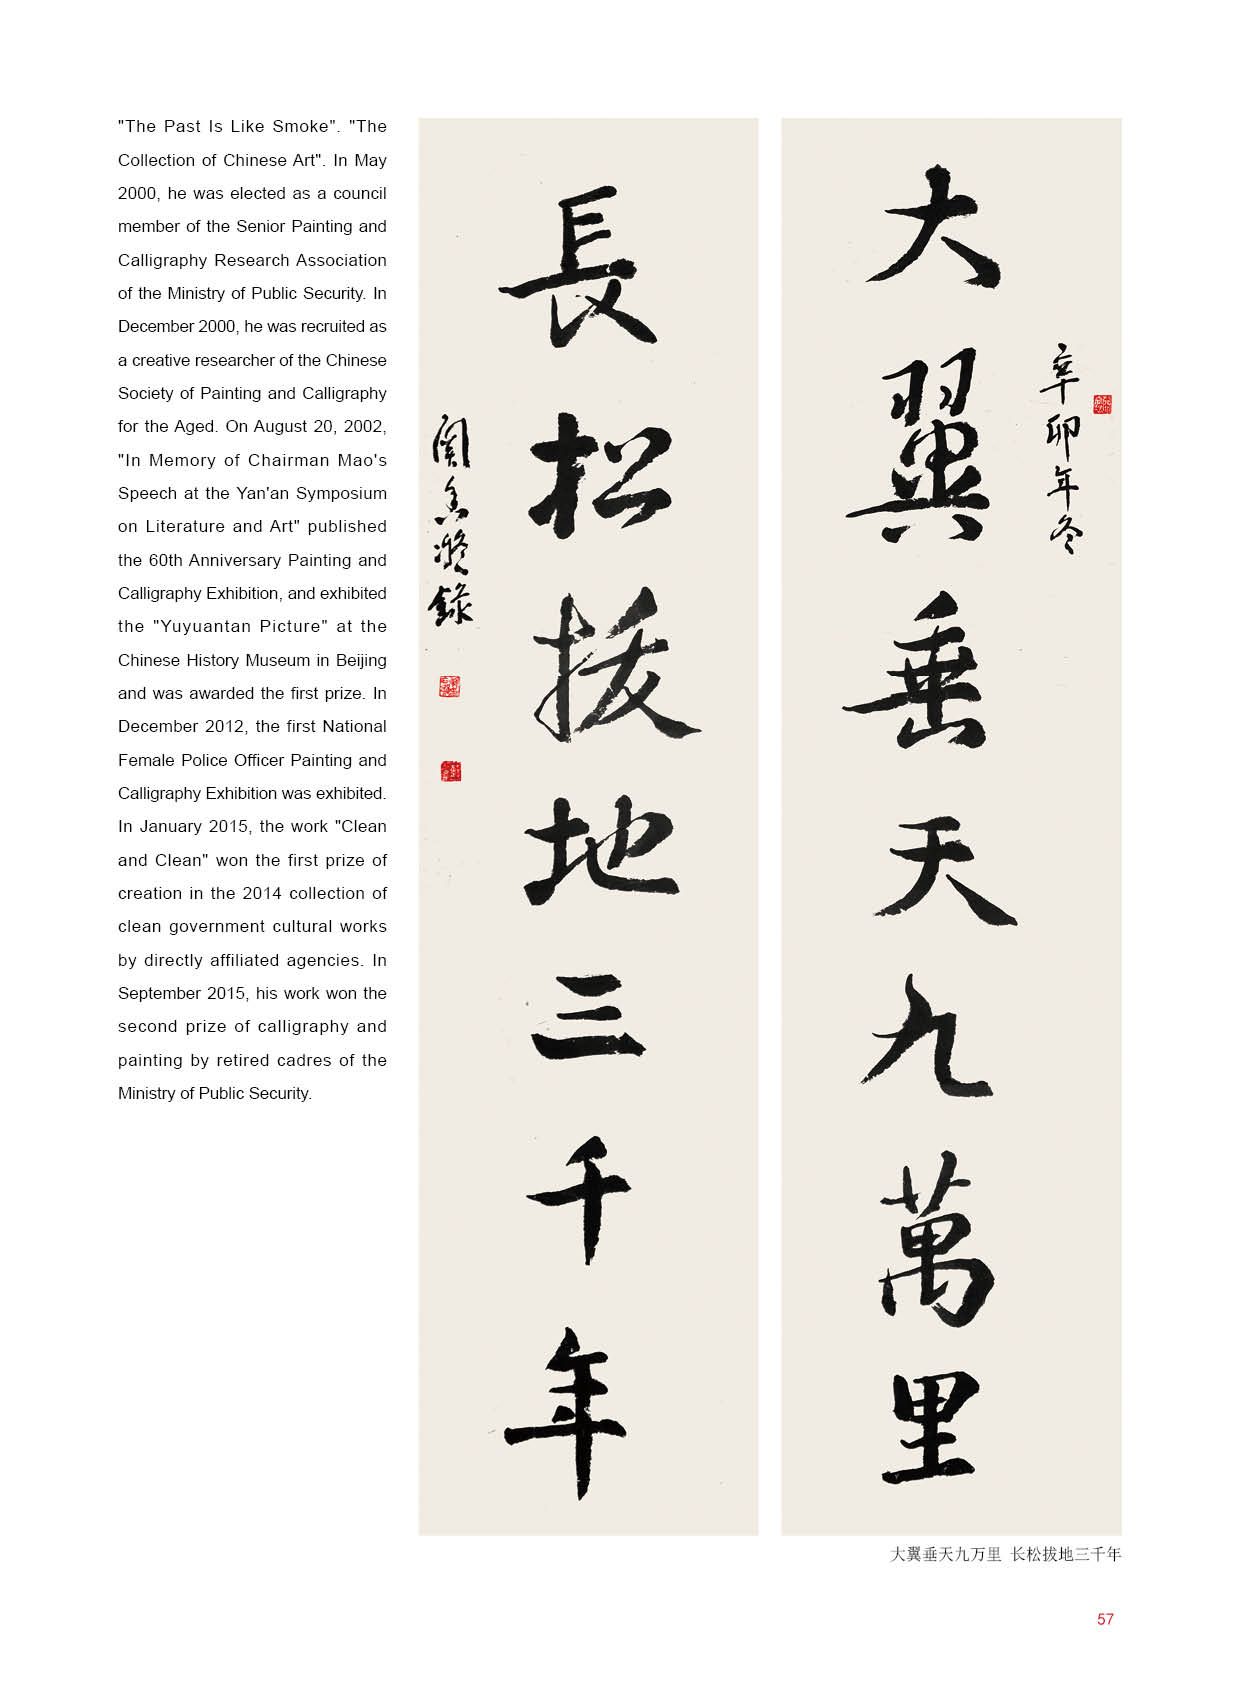 "The Past Is Like Smoke". "The
Collection of Chinese Art". In May
2000, he was elected as a council
member of the Senior Painting and
Calligraphy Research Association
of the Ministry of Public Security. In
December 2000, he was recruited as
a creative researcher of the Chinese
Society of Painting and Calligraphy
for the Aged. On August 20, 2002,
"In Memory of Chairman Mao's
Speech at the Yan'an Symposium
on Literature and Art" published
the 60th Anniversary Painting and
Calligraphy Exhibition, and exhibited
the "Yuyuantan Picture" at the
Chinese History Museum in Beijing
and was awarded the first prize. In
December 2012, the first National
Female Police Officer Painting and
Calligraphy Exhibition was exhibited.
In January 2015, the work "Clean
and Clean" won the first prize of
creation in the 2014 collection of
clean government cultural works
by directly affiliated agencies. In
September 2015, his work won the
second prize of calligraphy and
painting by retired cadres of the
Ministry of Public Security.
辛卯年冬
大翼垂天九萬里
長松拔地三千年
大翼垂天九万里 长松拔地三千年
57